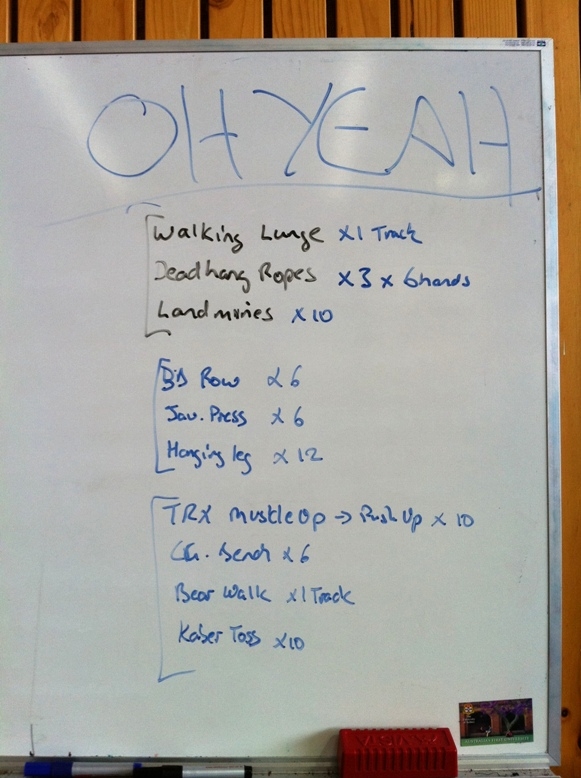 OH YEAH
Walking Lunge x1 Track
Deadhang Ropes x3 x 6hands
Landmines x10
Row x6
Jav. Press x6
Hanging leg x12
TRX MustleUp → Push Up x 10
CG. Bench x6
Bear Walk x1 Track
Kaiser Toss x10